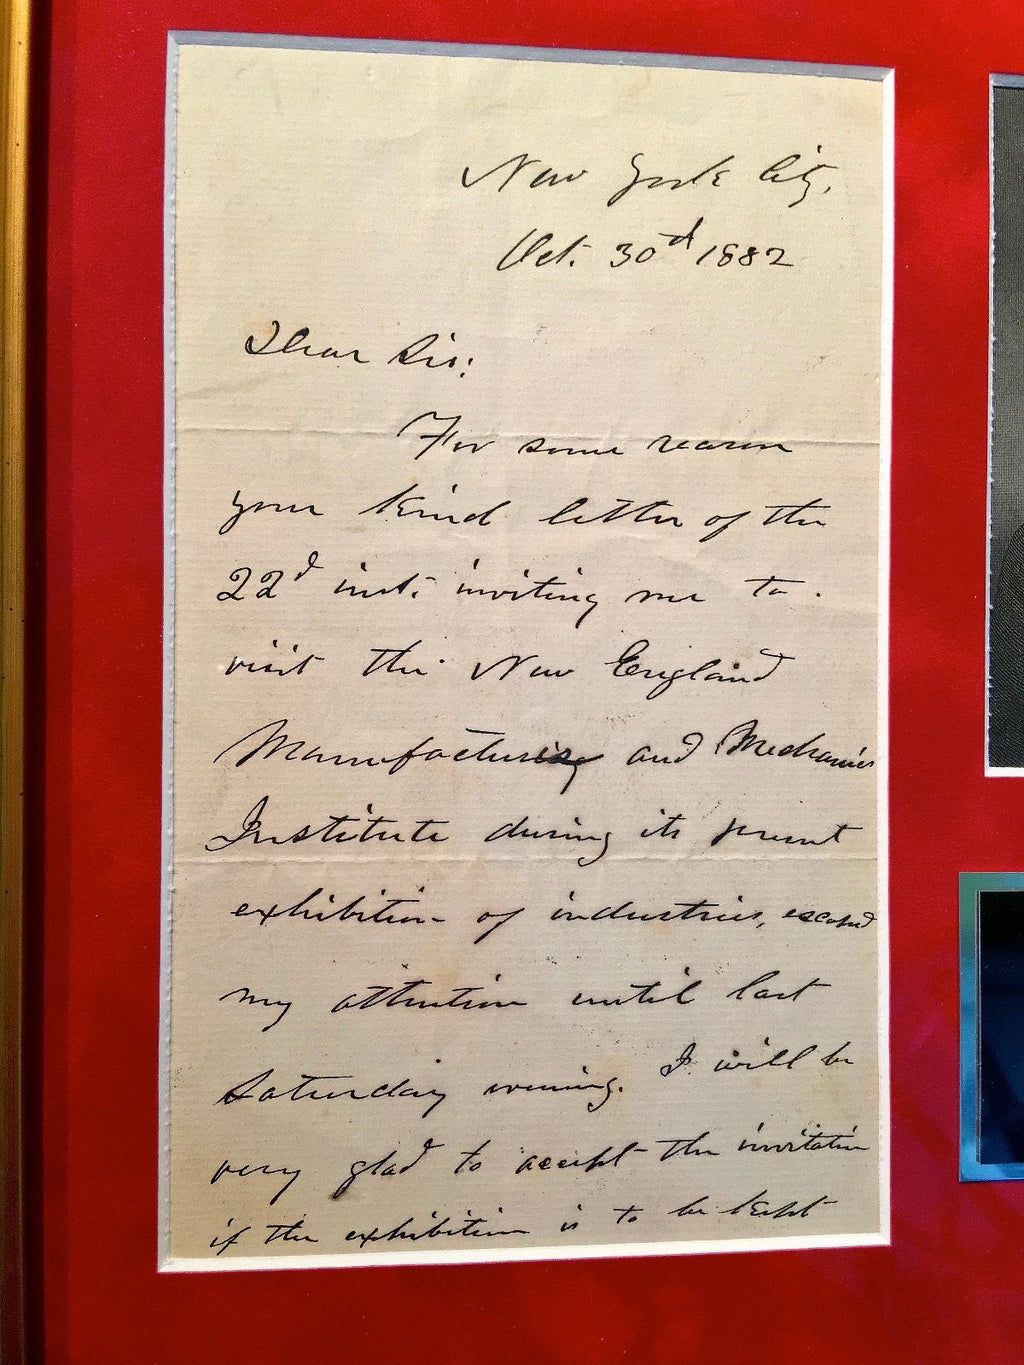 New York City,
Oct. 30d 1882
Dear Sir:
For some reason
your kind letter of the
22d inst. inviting me to
visit the New England
Manufacturing and Mechanics
Institute during its present
exhibition of industries, escaped
my attention until last
Saturday evening. I will be
very glad to accept the invitation
if the exhibition is to be kept